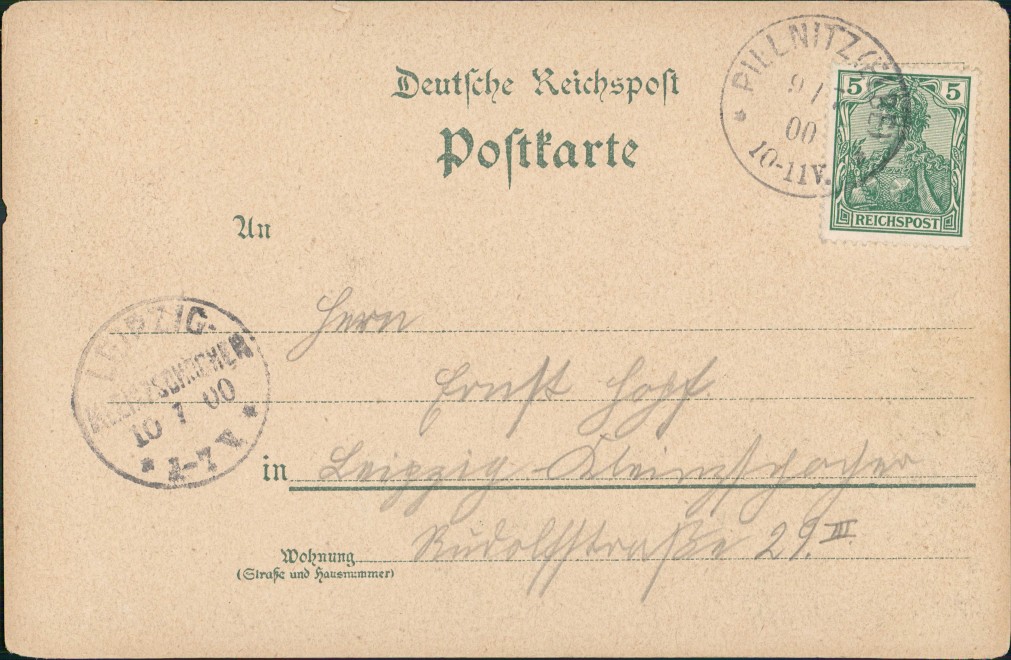 Deutsche Reichspost
Postkarte
PILLNITZ (ELBE)
9 7
00
10-11V.
5 5
REICHSPOST
An
Herrn
Ernst Hopf.
in Leipzig Kleinzschocher
Wohnung Rudolfstraße 29. III.
(Straße und Hausnummer)
LEIPZIG-
KLEINZSCHOCHER
10 7 00
V.